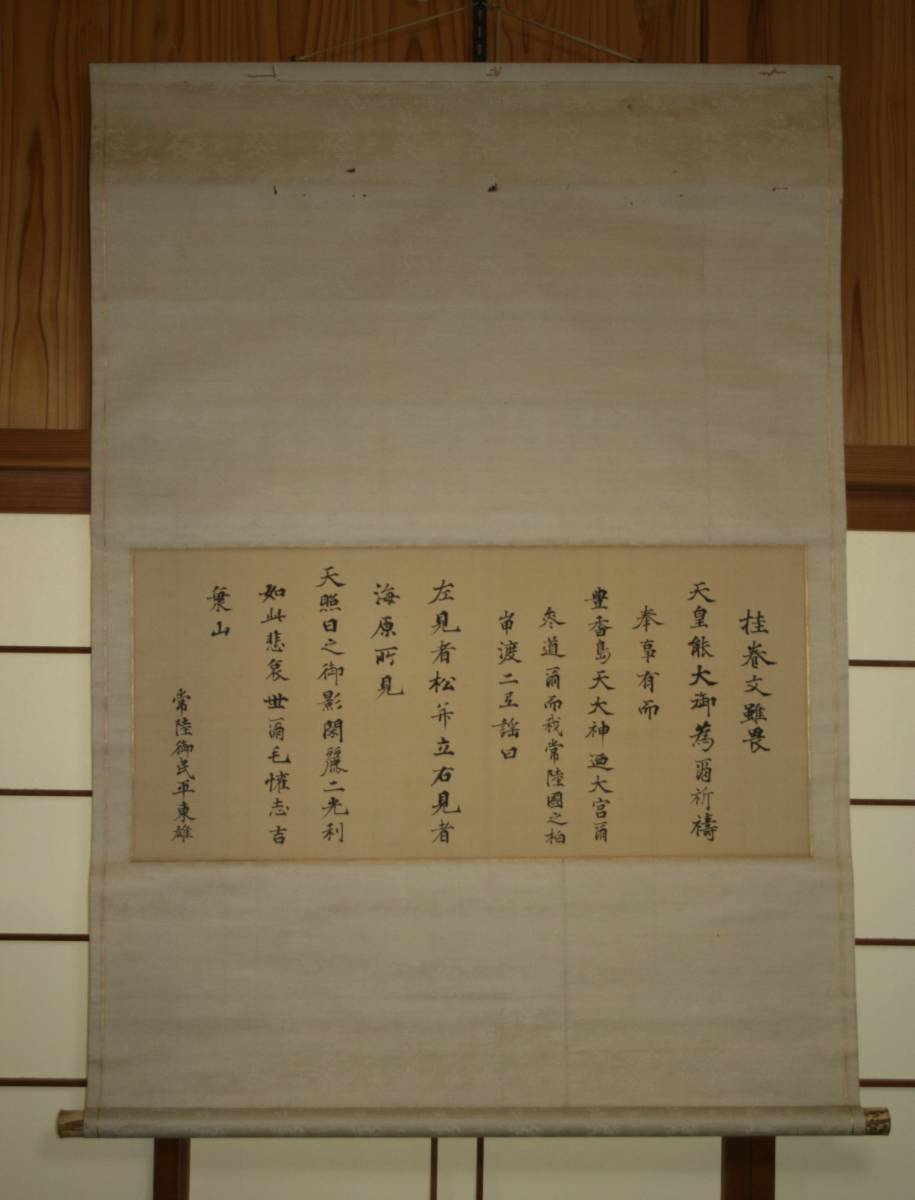 挂巻文雖畏
天皇能大御為爾祈禱
奉事有而
豊香島天大神迺大宮爾
参道爾而我常陸國之柏
當渡二至謡曰
左見者松並立右見者
海原所見
天照日之御影閑麗二光利
如此悲哀世爾毛慷志吉
葉山
常陸御民平東雄